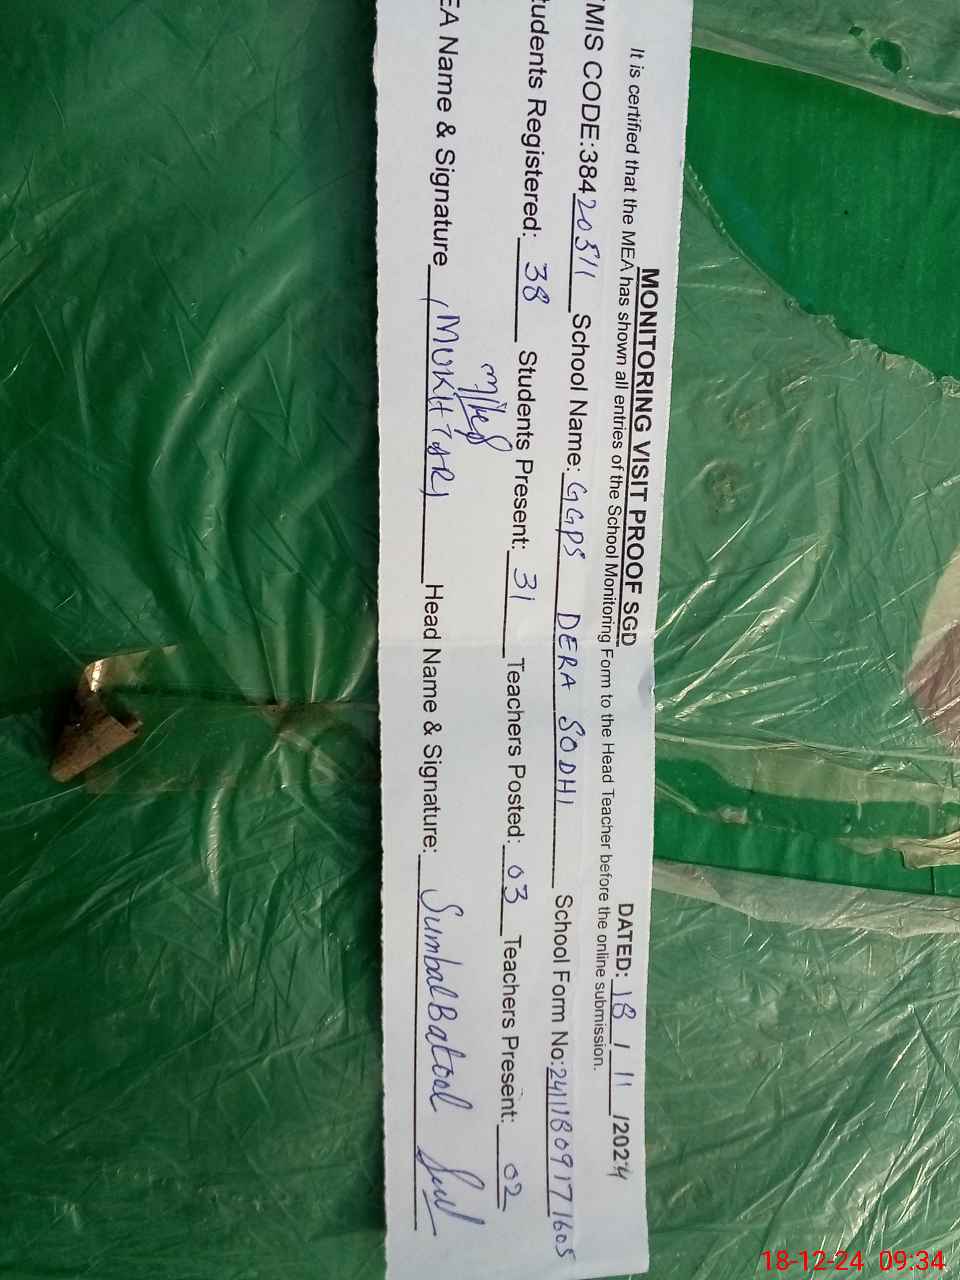 MONITORING VISIT PROOF SGD DATED: 18 / 11 /2024
It is certified that the MEA has shown all entries of the School Monitoring Form to the Head Teacher before the online submission.
MIS CODE:38420511 School Name: GGPS DERA SODHI School Form No:24111809171605
tudents Registered: 38 Students Present: 31 Teachers Posted: 03 Teachers Present: 02
EA Name & Signature (MUKHTAR) Head Name & Signature: Sumbal Batool
18-12-24 09:34